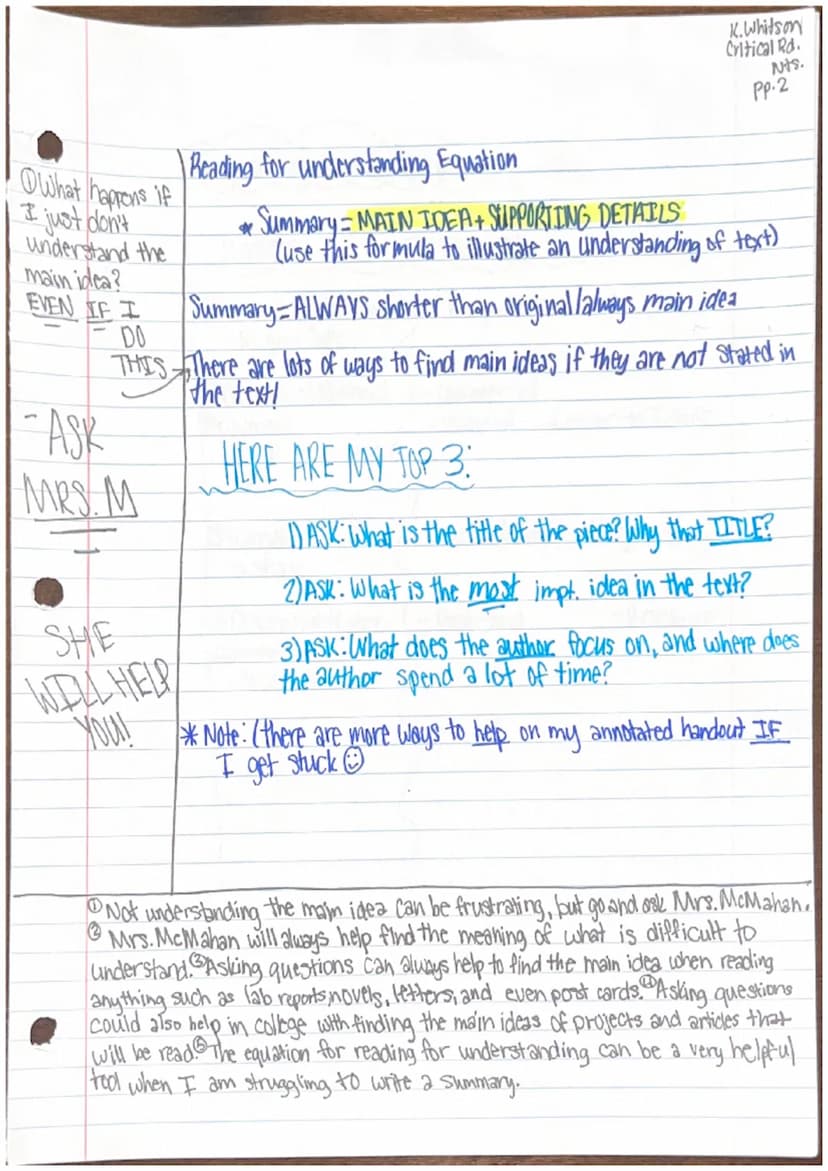 K.Whitson
Critical Rd.
Nts.
pp.2
①What happens if
I just don't
understand the
main idea?
EVEN IF I
DO
THIS
- ASK
MRS. M
SHE
WILL HELP
YOU!!
Reading for understanding Equation
* Summary = MAIN IDEA + SUPPORTING DETAILS
(use this formula to illustrate an understanding of text)
Summary = ALWAYS shorter than original/always main idea
There are lots of ways to find main ideas if they are not stated in
the text!
HERE ARE MY TOP 3:
1) ASK: What is the title of the piece? Why that TITLE?
2) ASK: What is the most impt. idea in the text?
3) ASK: What does the author focus on, and where does
the author spend a lot of time?
* Note: (there are more ways to help on my annotated handout IF
I get stuck ☺
①Not understanding the main idea can be frustrating, but go and ask Mrs. McMahan.
② Mrs. McMahan will always help find the meaning of what is difficult to
understand. ③Asking questions can always help to find the main idea when reading
anything such as lab reports, novels, letters, and even post cards. ④Asking questions
could also help in college with finding the main ideas of projects and articles that
will be read. ⑤The equation for reading for understanding can be a very helpful
tool when I am struggling to write a summary.